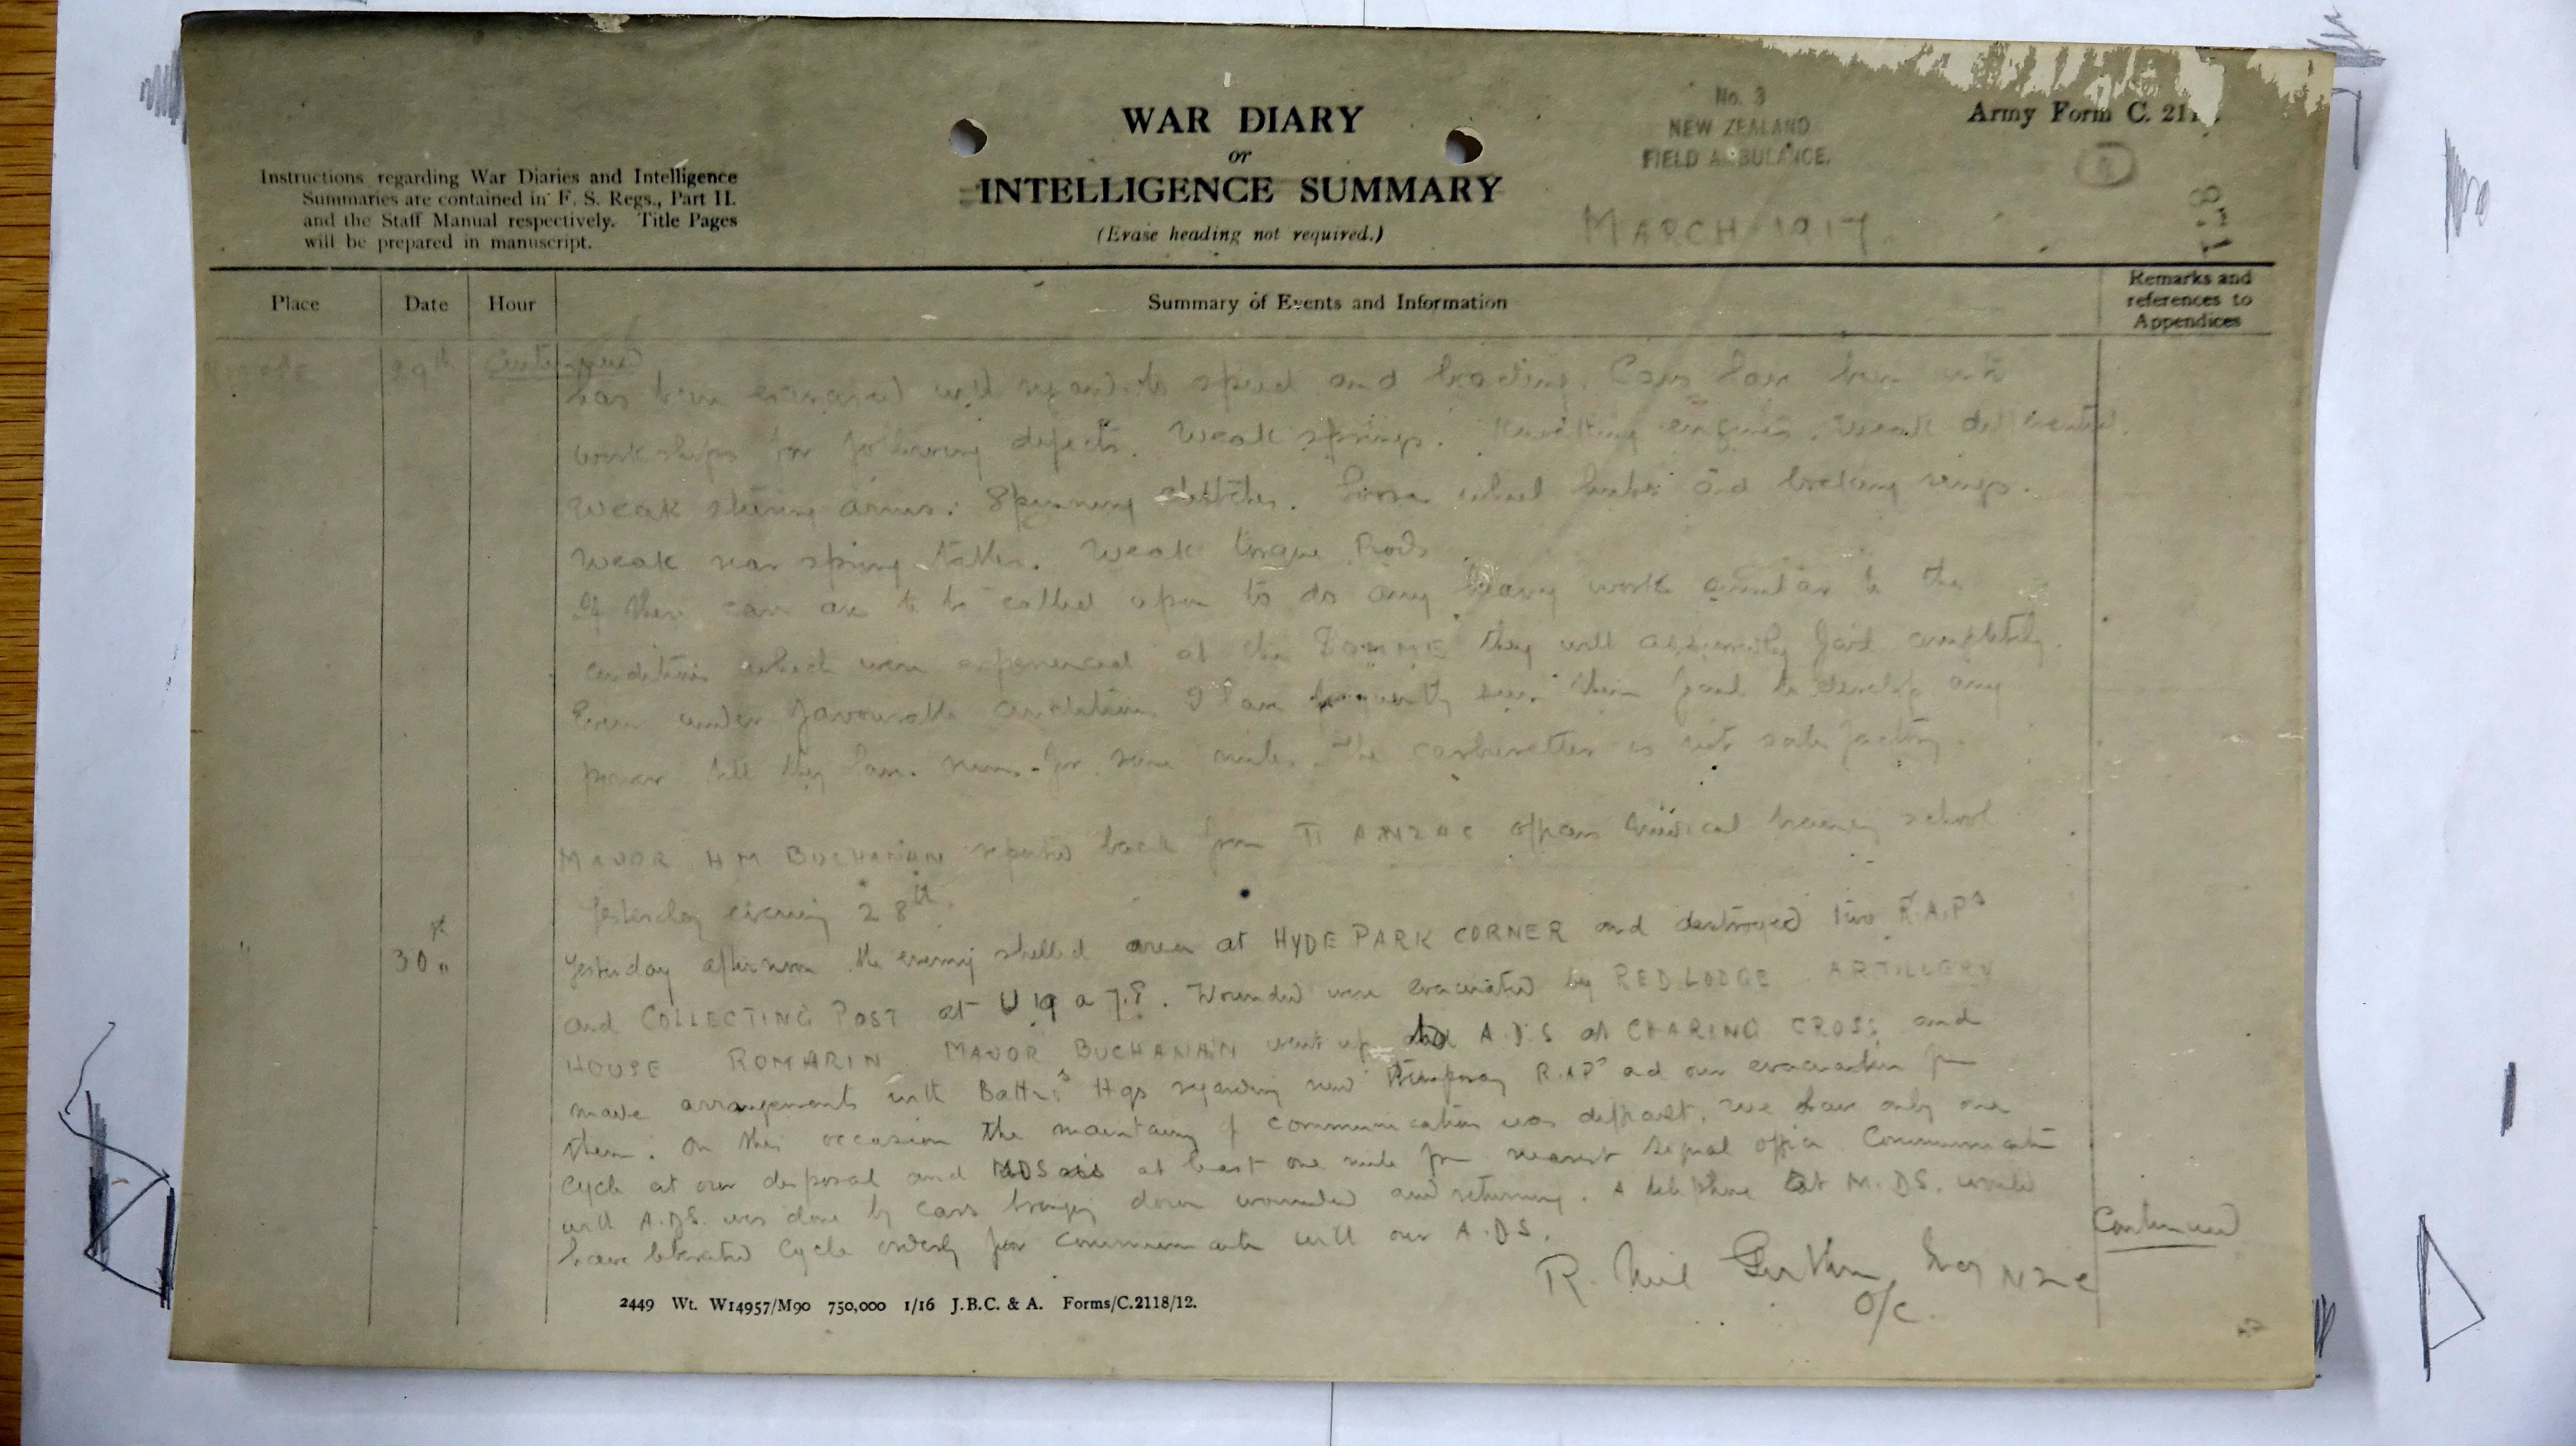 WAR DIARY
or
INTELLIGENCE SUMMARY
(Erase heading not required.)
No. 3
NEW ZEALAND
FIELD AMBULANCE.
Army Form C. 211
MARCH 1917
Instructions regarding War Diaries and Intelligence
Summaries are contained in F. S. Regs., Part II.
and the Staff Manual respectively. Title Pages
will be prepared in manuscript.
Place Date Hour Summary of Events and Information Remarks and references to Appendices
29th Continued
has been exercised with regard to speed and loading. Cars have been into
workshops for following defects. Weak springs. Knocking engines. Weak
Weak steering arms. Spinning clutches. Loose wheel hubs and locking rings.
Weak rear spring Weak torque Rods
If these cars are to be called upon to do any heavy work similar to the
conditions which were experienced at the SOMME they will assuredly fail completely.
Even under favourable conditions I have frequently seen them fail to develop any
power till they have run for some miles. The carburetter is not satisfactory.
MAJOR H M BUCHANAN reported back from II ANZAC officers medical training school
Yesterday evening 28th.
" 30th
Yesterday afternoon the enemy shelled area at HYDE PARK CORNER and destroyed two R.A.Ps
and COLLECTING POST at U 19 a 7.8. Wounded were evacuated by RED LODGE ARTILLERY
HOUSE ROMARIN MAJOR BUCHANAN went up to A.D.S at CHARING CROSS and
made arrangements with Battns Hqs regarding new temporary R.A.Ps and our evacuation from
them. On this occasion the maintaing of communication was difficult. We have only one
Cycle at our disposal and MDS at least one mile from nearest signal office Communication
with A.D.S. was done by cars bringing down wounded and returning. A telephone at M.D.S. would
have liberated Cycle orderly for communication with our A.D.S.
Continued
R. Neil Guthrie NZMC
O/C.
2449 Wt. W14957/M90 750,000 1/16 J.B.C. & A. Forms/C.2118/12.